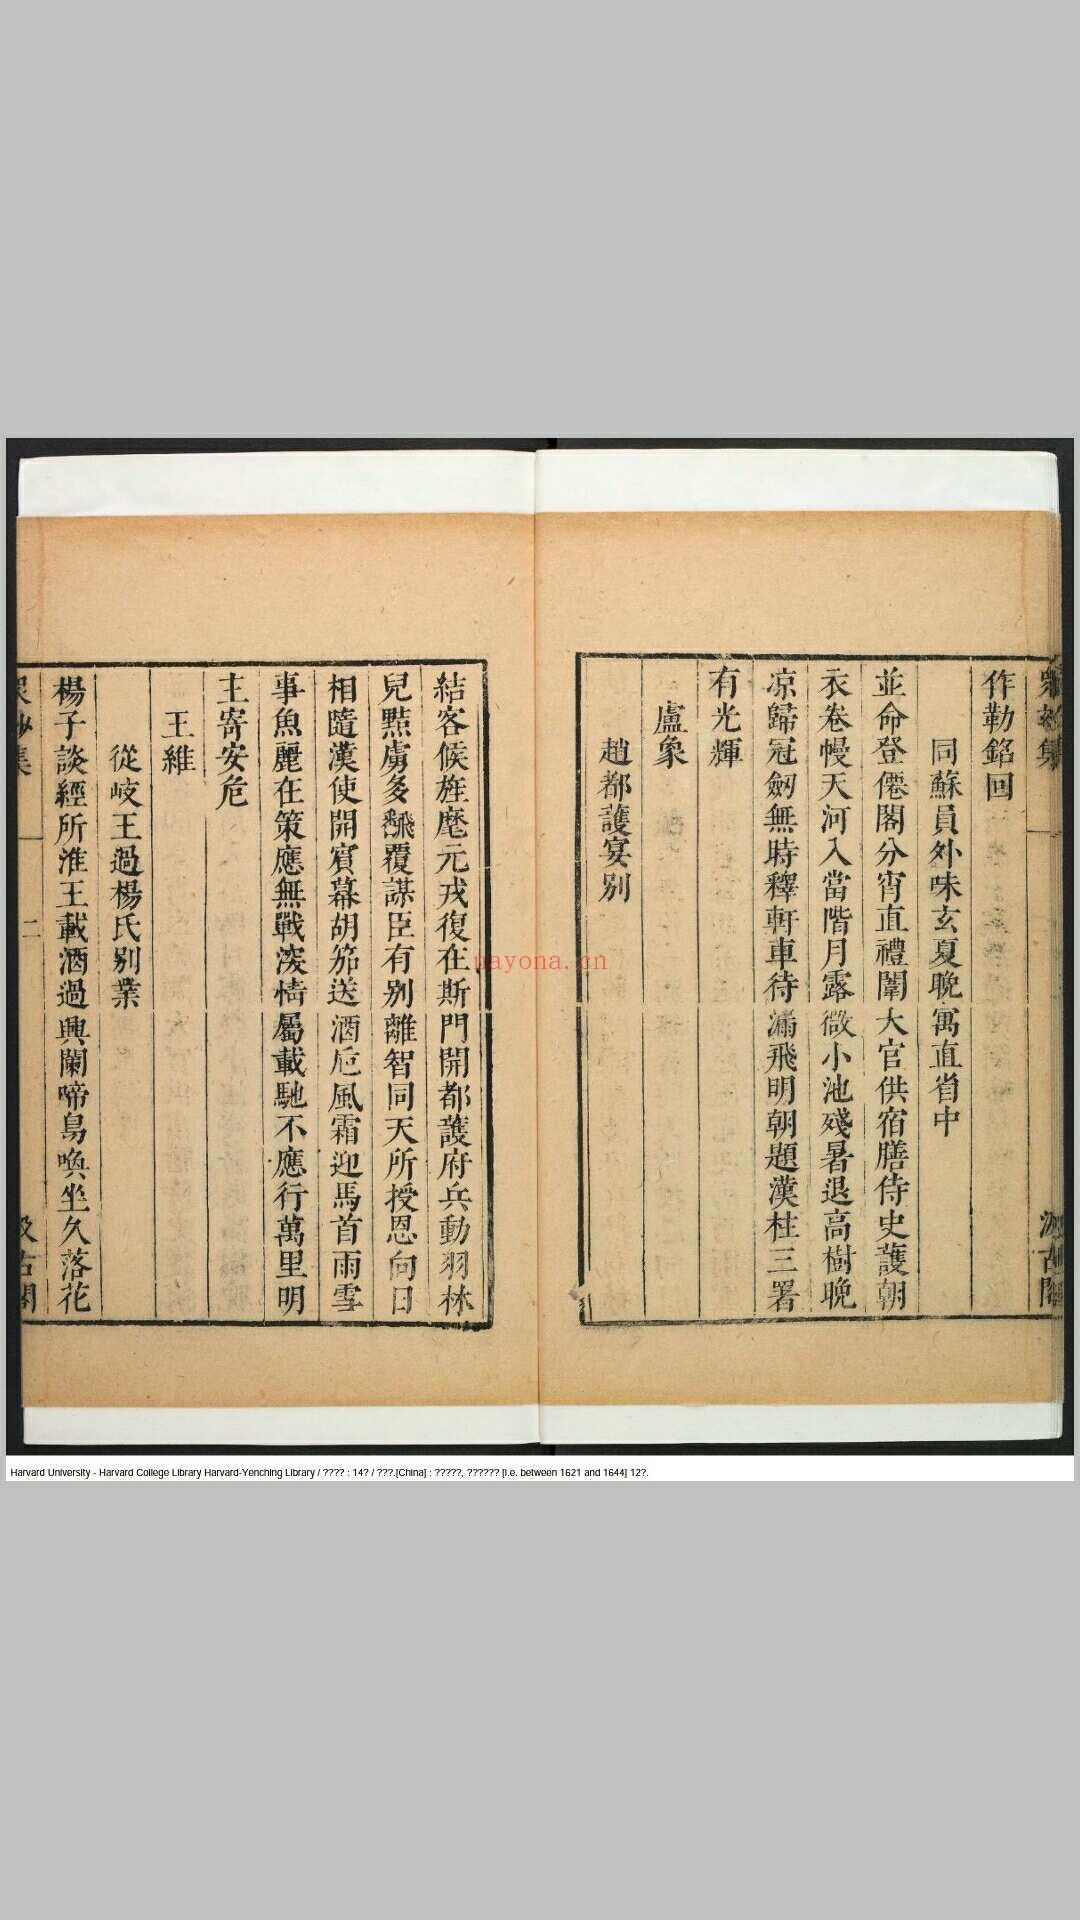 衆妙集
汲古閣
作勒銘回
同蘇員外味玄夏晚寓直省中
並命登僊閣分宵直禮闈大官供宿膳侍史護朝
衣卷幔天河入當階月露微小池殘暑退高樹晚
凉歸冠劒無時釋軒車待漏飛明朝題漢柱三署
有光輝
盧象
趙都護宴别
結客候旌麾元戎復在斯門開都護府兵動羽林
兒黠虜多飜覆謀臣有别離智同天所授恩向日
相隨漢使開賓幕胡笳送酒巵風霜迎馬首雨雪
事魚麗在策應無戰深情屬載馳不應行萬里明
主寄安危
王維
從岐王過楊氏别業
楊子談經所淮王載酒過興闌啼鳥喚坐久落花
衆妙集
二
汲古閣
nayona.cn
Harvard University - Harvard College Library Harvard-Yenching Library / ???? : 14? / ???.[China] : ?????, ?????? [i.e. between 1621 and 1644] 12?.